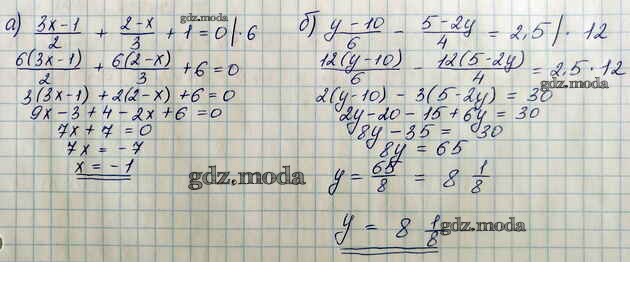 а) (3x-1)/2 + (2-x)/3 + 1 = 0 |· 6
6(3x-1)/2 + 6(2-x)/3 + 6 = 0
3(3x-1) + 2(2-x) + 6 = 0
9x - 3 + 4 - 2x + 6 = 0
7x + 7 = 0
7x = -7
x = -1
б) (y-10)/6 - (5-2y)/4 = 2,5 |· 12
12(y-10)/6 - 12(5-2y)/4 = 2,5 · 12
2(y-10) - 3(5-2y) = 30
2y - 20 - 15 + 6y = 30
8y - 35 = 30
8y = 65
y = 65/8 = 8 1/8
y = 8 1/8
gdz.moda
gdz.moda
gdz.moda
gdz.moda